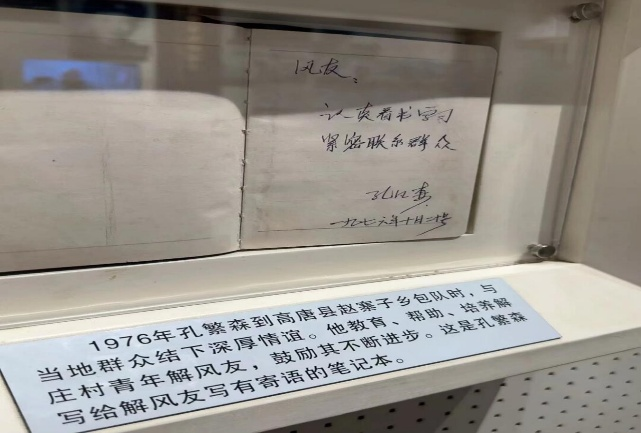 风友：
认真看书学习
紧密联系群众
孔繁森
一九七六年十月二十号
1976年孔繁森到高唐县赵寨子乡包队时，与
当地群众结下深厚情谊。他教育、帮助、培养解
庄村青年解风友，鼓励其不断进步。这是孔繁森
写给解风友写有寄语的笔记本。